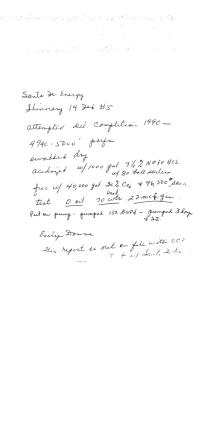 Santa Fe Energy
Shinnery 14 Fed #5
Attempted Del. Completion 1990 -
4940 - 5000' perfs
swabbed dry
acidized w/1000 gal 7½% NeFe HCl
w/80 ball sealers
frac w/ 40,000 gal 30% CO2 &
test 0 oil 70 wtr 22 mcf gas
Put on pump - pumped 150 BWPD - pumped 3 days
This report is not on file with OCD